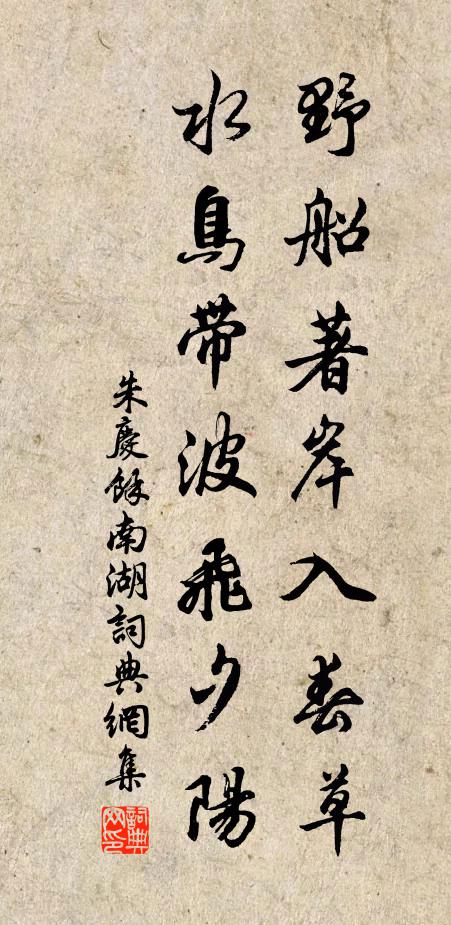 野船著岸入春草
水鳥帶波飛夕陽
朱慶餘南湖詞典網集
詞典網印